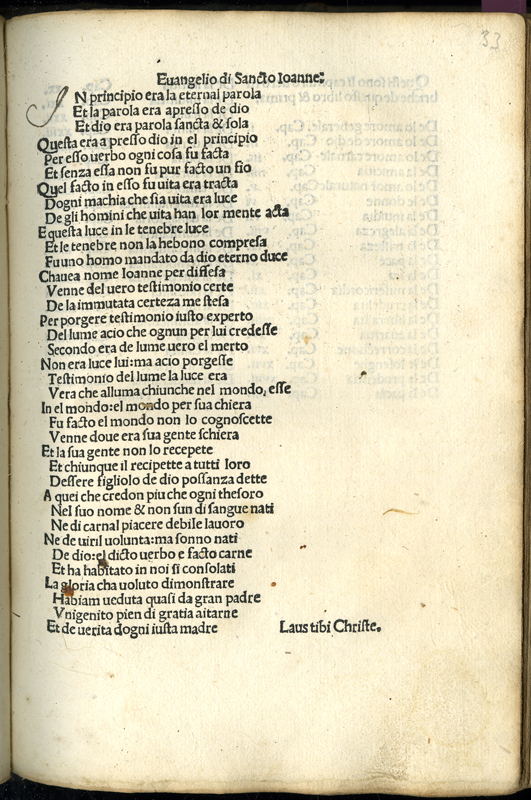 33
Euangelio di Sancto Ioanne:
IN principio era la eternal parola
Et la parola era apresso de dio
Et dio era parola sancta & sola
Questa era a presso dio in el principio
Per esso uerbo ogni cosa fu facta
Et senza essa non fu pur facto un fio
Quel facto in esso fu uita era tracta
Dogni machia che sia uita era luce
De gli homini che uita han lor mente acta
E questa luce in le tenebre luce
Et le tenebre non la hebono compresa
Fu uno homo mandato da dio eterno duce
Chauea nome Ioanne per diffesa
Venne del uero testimonio certe
De la immutata certeza me stesa
Per porgere testimonio iusto experto
Del lume acio che ognun per lui credesse
Secondo era de lume uero el merto
Non era luce lui:ma acio porgesse
Testimonio del lume la luce era
Vera che alluma chiunche nel mondo, esse
In el mondo:el mondo per sua chiera
Fu facto el mondo non lo cognoscette
Venne doue era sua gente schiera
Et la sua gente non lo recepete
Et chiunque il recipette a tutti loro
Dessere figliolo de dio possanza dette
A quei che credon piu che ogni thesoro
Nel suo nome & non sun di sangue nati
Ne di carnal piacere debile lauoro
Ne de uiril uolunta:ma sonno nati
De dio:el dicto uerbo e facto carne
Et ha habitato in noi si consolati
La gloria cha uoluto dimonstrare
Habiam ueduta quasi da gran padre
Vnigenito pien di gratia aitarne
Et de uerita dogni iusta madre Laus tibi Christe.